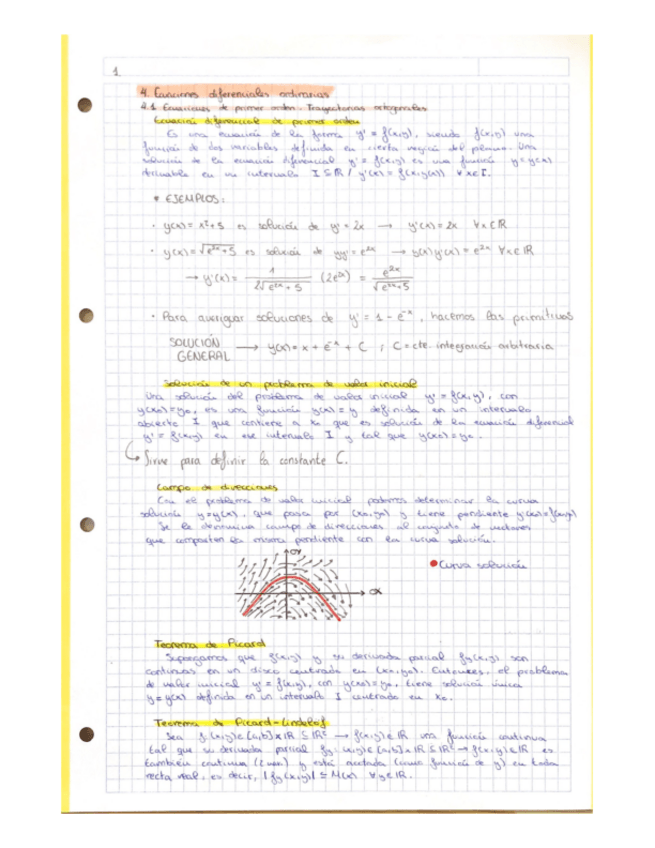 1
4. Ecuaciones diferenciales ordinarias
4.1 Ecuaciones de primer orden. Trayectorias ortogonales
Ecuación diferencial de primer orden
Es una ecuación de la forma y' = f(x,y), siendo f(x,y) una
función de dos variables definida en cierta región del plano. Una
solución de la ecuación diferencial y' = f(x,y) es una función y=y(x)
derivable en un intervalo I ⊆ ℝ / y'(x) = f(x,y(x)) ∀x∈I.
* EJEMPLOS:
· y(x) = x²+5 es solución de y' = 2x → y'(x) = 2x ∀x∈ℝ
· y(x) = √(e²ˣ+5) es solución de yy' = e²ˣ → y(x)y'(x) = e²ˣ ∀x∈ℝ
→ y'(x) = 1 / (2√(e²ˣ+5)) (2e²ˣ) = e²ˣ / √(e²ˣ+5)
· Para averiguar soluciones de y' = 1 - e⁻ˣ, hacemos las primitivas
SOLUCIÓN GENERAL → y(x) = x + e⁻ˣ + C ; C = cte. integración arbitraria
Solución de un problema de valor inicial
Una solución del problema de valor inicial y' = f(x,y), con
y(x₀)=y₀, es una función y(x) = y definida en un intervalo
abierto I que contiene a x₀ que es solución de la ecuación diferencial
y' = f(x,y) en ese intervalo I y tal que y(x₀)=y₀.
↳ Sirve para definir la constante C.
Campo de direcciones
Con el problema de valor inicial podemos determinar la curva
solución y=y(x), que pasa por (x₀,y₀) y tiene pendiente y'(x₀)=f(x₀,y₀)
Se le denomina campo de direcciones al conjunto de vectores
que comparten la misma pendiente con la curva solución.
OY
● Curva solución
OX
Teorema de Picard
Supongamos que f(x,y) y su derivada parcial fy(x,y) son
continuas en un disco centrado en (x₀,y₀). Entonces, el problema
de valor inicial y' = f(x,y), con y(x₀)=y₀, tiene solución única
y=y(x) definida en un intervalo I centrado en x₀.
Teorema de Picard-Lindelöf
Sea f: (x,y)∈[a,b]×ℝ ⊆ ℝ² → f(x,y)∈ℝ una función continua
tal que su derivada parcial fy: (x,y)∈[a,b]×ℝ ⊆ ℝ² → fy(x,y)∈ℝ es
también continua y está acotada (como función de y) en toda
recta real, es decir, |fy(x,y)| ≤ M(x) ∀y∈ℝ.